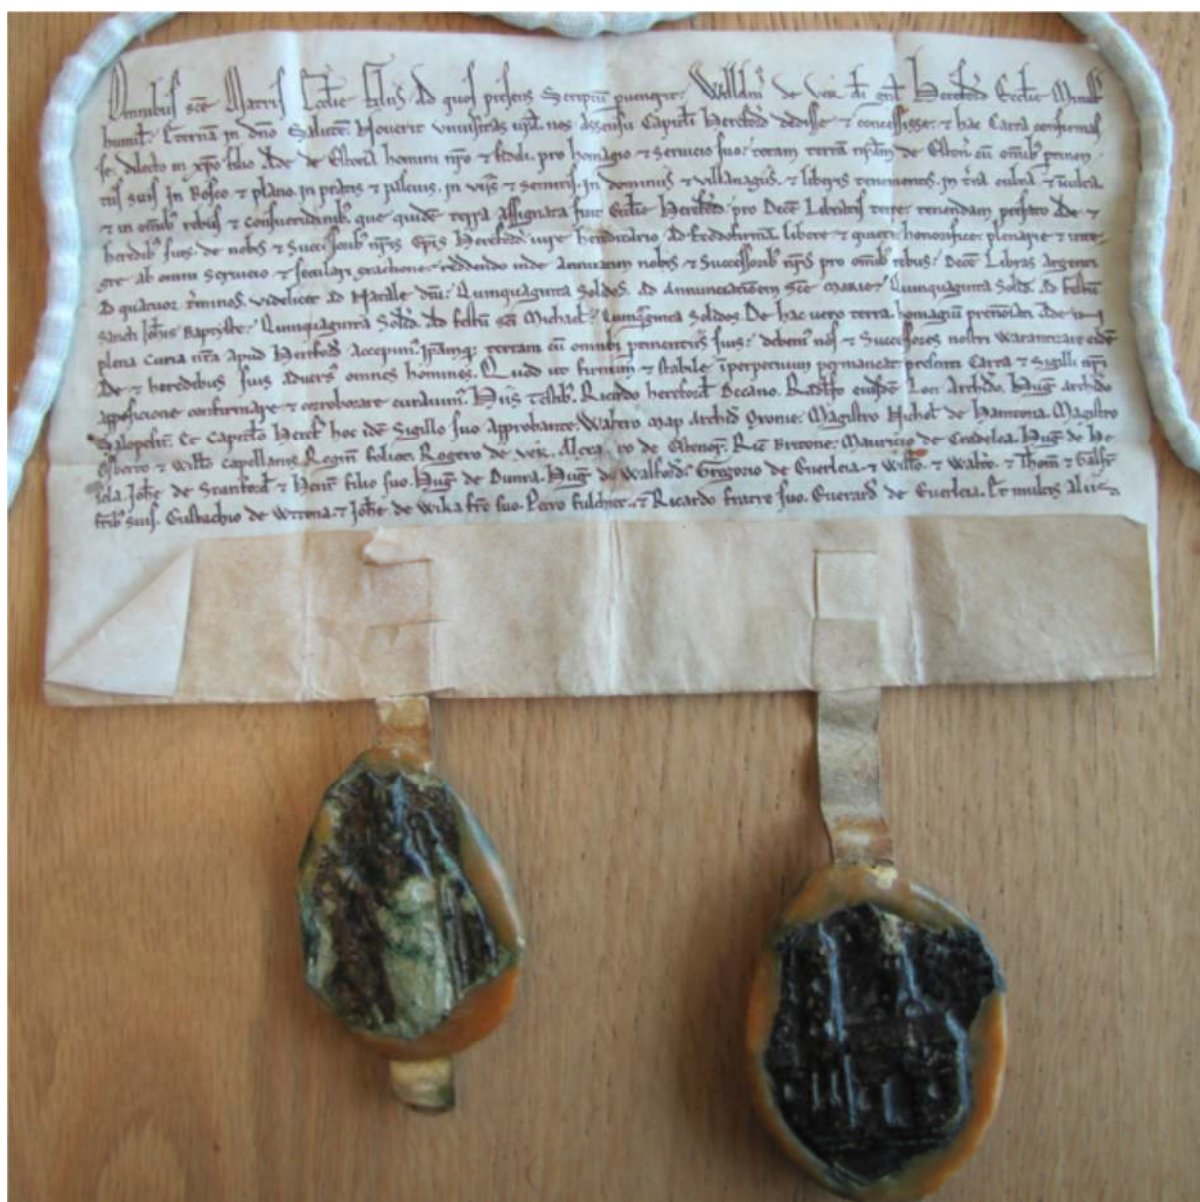 Omnibus sce Matris Ecclie filiis Ad quos presens Scriptu puenerit. Willms de Ver di gra Hereford Ecclie Minist
humil. Eterna in dno Salute. Noverit vniversitas vra nos Assensu Capituli Hereford dedisse & concessisse. & hac Carta confirmas
se dilecto in xpo filio Ade de Estona homini nro & fideli. pro homagio & servicio suo. totam terra nram de Eston cu omib ptinen
tiis suis in Bosco & plano. in pratis & pascuis. in viis & semitis. in dominiis & villanagiis. & liberis tenementis. in tra culta & inculta.
& in omib rebus & consuetudinib. que quide terra assignata fuit Ecclie Hereford pro Dece Libratis terre. tenendam prefato Ade &
heredib suis. de nobis & Successorib nris Epis Hereford iure hereditario Ad feodofirma. libere & quiete. honorifice. plenarie & inte
gre ab omni servicio & seculari exactione. reddendo inde Annuatim nobis & Successorib nris pro omib rebus. Dece Libras argenti
Ad quatuor tminos. videlicet Ad Natale dni. Quinquaginta Solidos. Ad Annunciationem Sce Marie. Quinquaginta Solid. Ad festu
Sancti Johis Baptiste. Quinquaginta Solid. Ad festu sci Michael. Quinquaginta Solidos. De hac uero terra. homagiu prenotati Ade in
plena Curia nra apud Hereford Accepim. Ipamq terram cu omnib ptinentiis suis. debem nos & Successores nostri Warantizare eide
Ade & heredibus suis Aduers omnes homines. Quod ut firmum & stabile imperpetuum permaneat. presenti Carta & Sigilli nri
apposicione confirmare & corroborare curauim. Hiis testib. Ricardo hereford Decano. Radulfo eiusde Loci Archid. Hug archid
Salopesir. Et Capitulo Heref hoc ide Sigillo suo Approbante. Waltero Map archid Oxonie. Magistro Nichol de Hamtona. Magistro
Osberto & Willo Capellanis. Regin foliot. Rogero de ver. Alexandro de Ric Britone. Mauricio de Hug de
Johe de Stanford & Henr filio suo. Hug de Dunra. Hug de Walford. Gregorio de Euerleia. & Willo. & Walto. & Thom & Galfr
frib suis. Eustachio de Wittona. & Johe de Wika fre suo. Petro fulcher. & Ricardo fratre suo. Euerard de Euerleia. Et multis Aliis